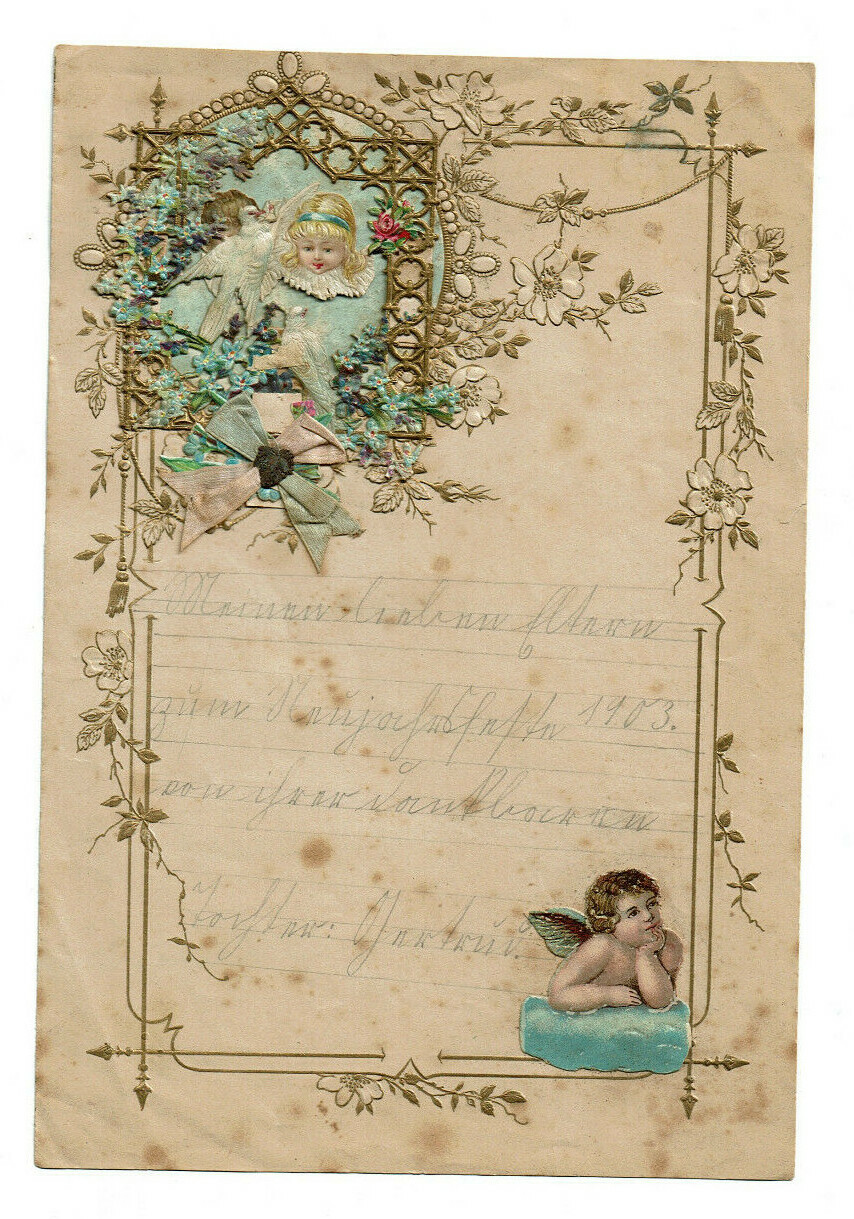 Meinen lieben Eltern
zum Neujahrsfeste 1903.
von ihrer dankbaren
Tochter: Gertrud.